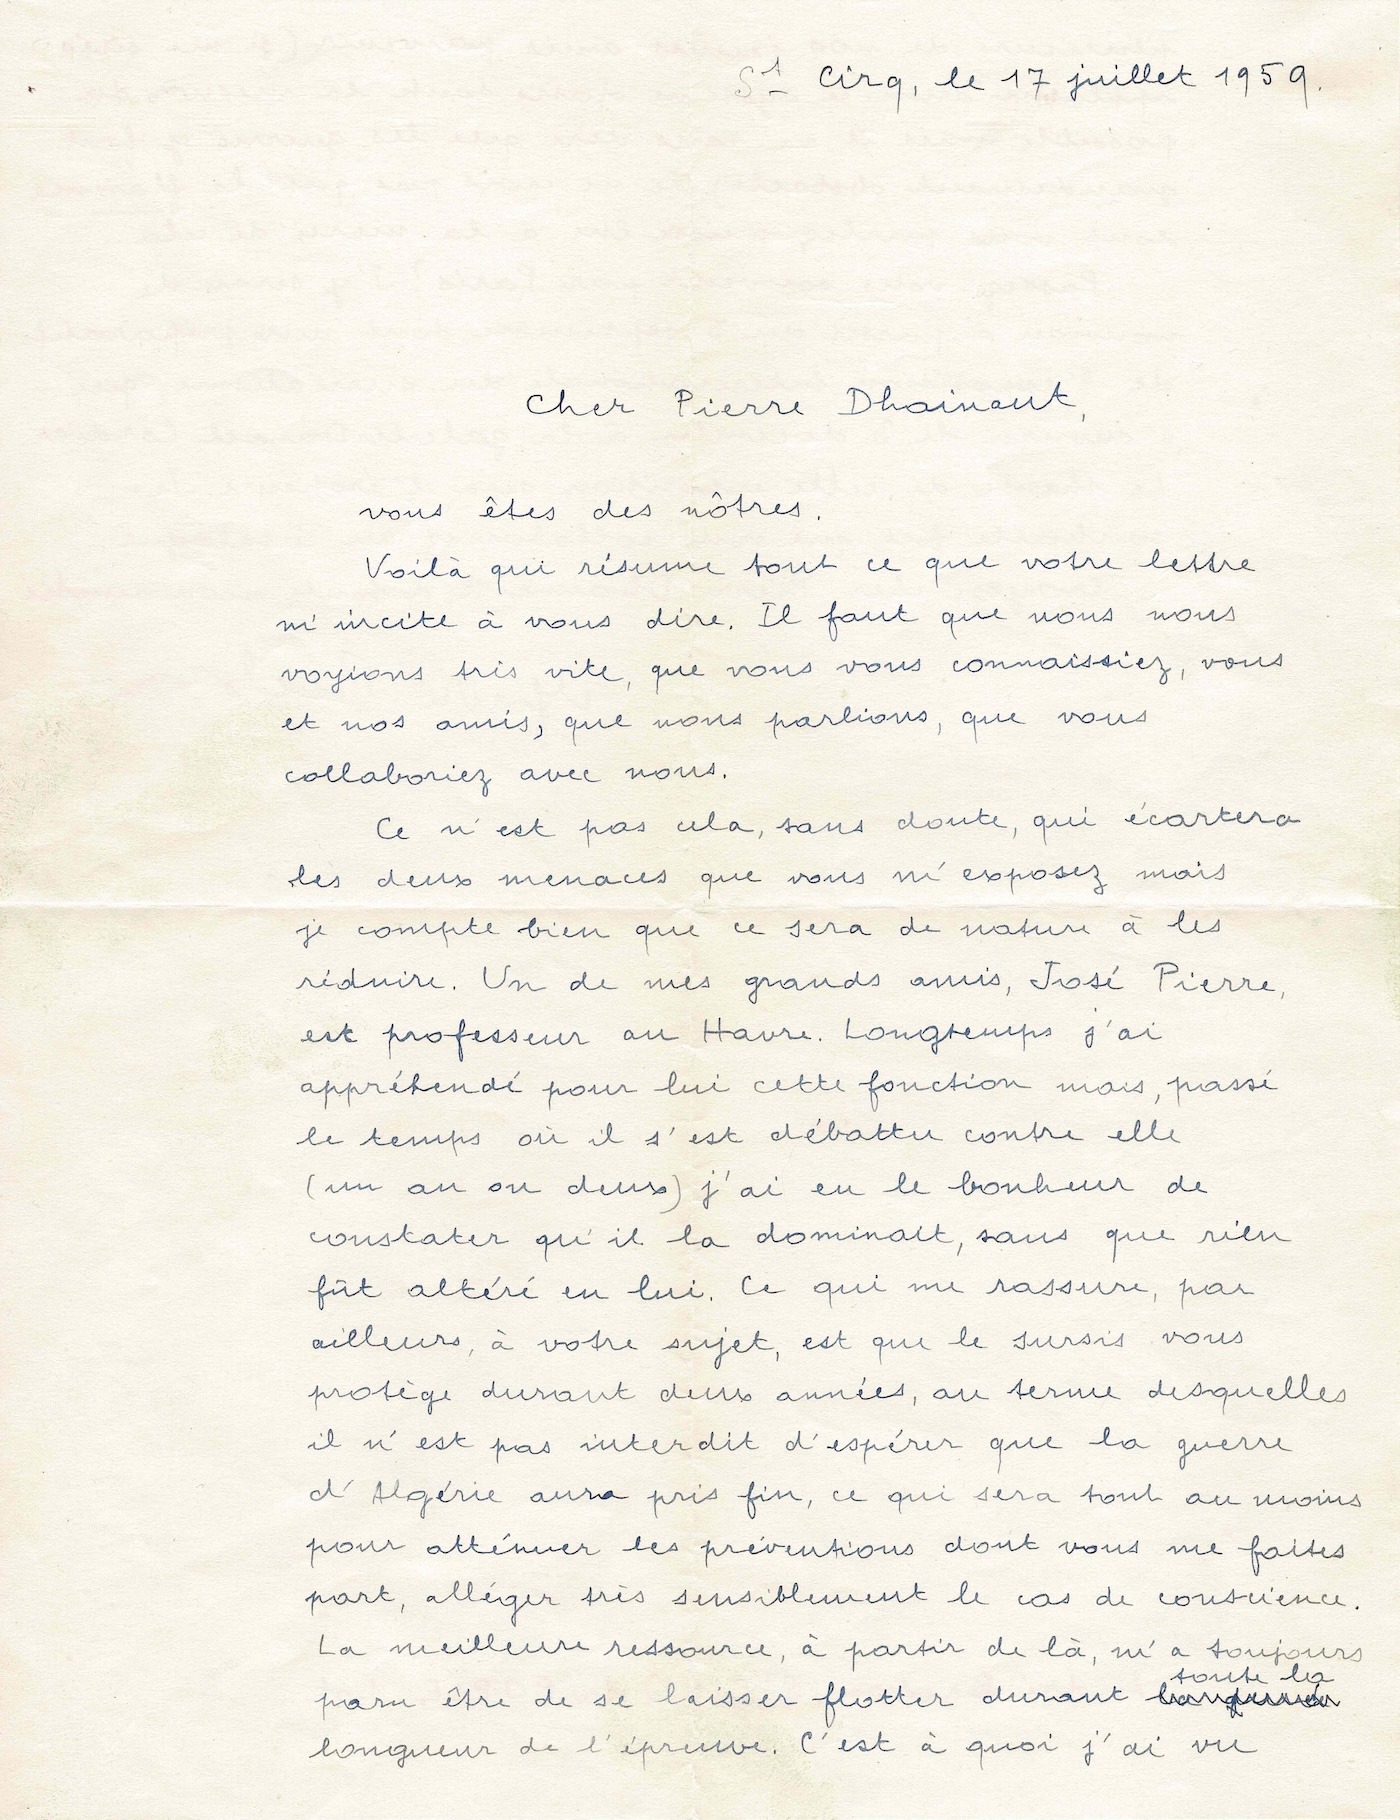 St Cirq, le 17 juillet 1959.
Cher Pierre Dhainaut,
vous êtes des nôtres.
Voilà qui résume tout ce que votre lettre
m'incite à vous dire. Il faut que nous nous
voyions très vite, que vous vous connaissiez, vous
et nos amis, que nous parlions, que vous
collaboriez avec nous.
Ce n'est pas cela, sans doute, qui écartera
les deux menaces que vous m'exposez mais
je compte bien que ce sera de nature à les
réduire. Un de mes grands amis, José Pierre,
est professeur au Havre. Longtemps j'ai
appréhendé pour lui cette fonction mais, passé
le temps où il s'est débattu contre elle
(un an ou deux) j'ai eu le bonheur de
constater qu'il la dominait, sans que rien
fût altéré en lui. Ce qui me rassure, par
ailleurs, à votre sujet, est que le sursis vous
protège durant deux années, au terme desquelles
il n'est pas interdit d'espérer que la guerre
d'Algérie aura pris fin, ce qui sera tout au moins
pour atténuer les préventions dont vous me faites
part, alléger très sensiblement le cas de conscience.
La meilleure ressource, à partir de là, m'a toujours
paru être de se laisser flotter durant toute la
longueur de l'épreuve. C'est à quoi j'ai vu